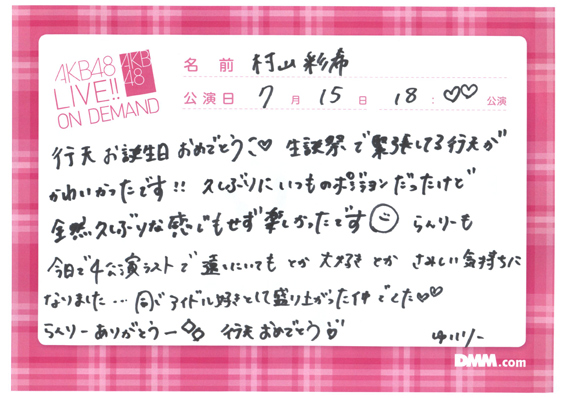 AKB48
LIVE!!
ON DEMAND
AKB
48
名前 村山彩希
公演日 7月15日 18:♡♡公演
行天お誕生日おめでとう♡ 生誕祭で緊張してる行天が
かわいかったです!! 久しぶりにいつものポジションだったけど
全然久しぶりな感じもせず楽しかったです らんりーも
今日で4公演ラストで 遠いにいても とか 大好き とか さみしい気持ちに
なりました… 同じアイドル好きとして盛り上がった仲でした♡♡
らんりーありがとうー 行天おめでとう
ゆいりー
DMM.com